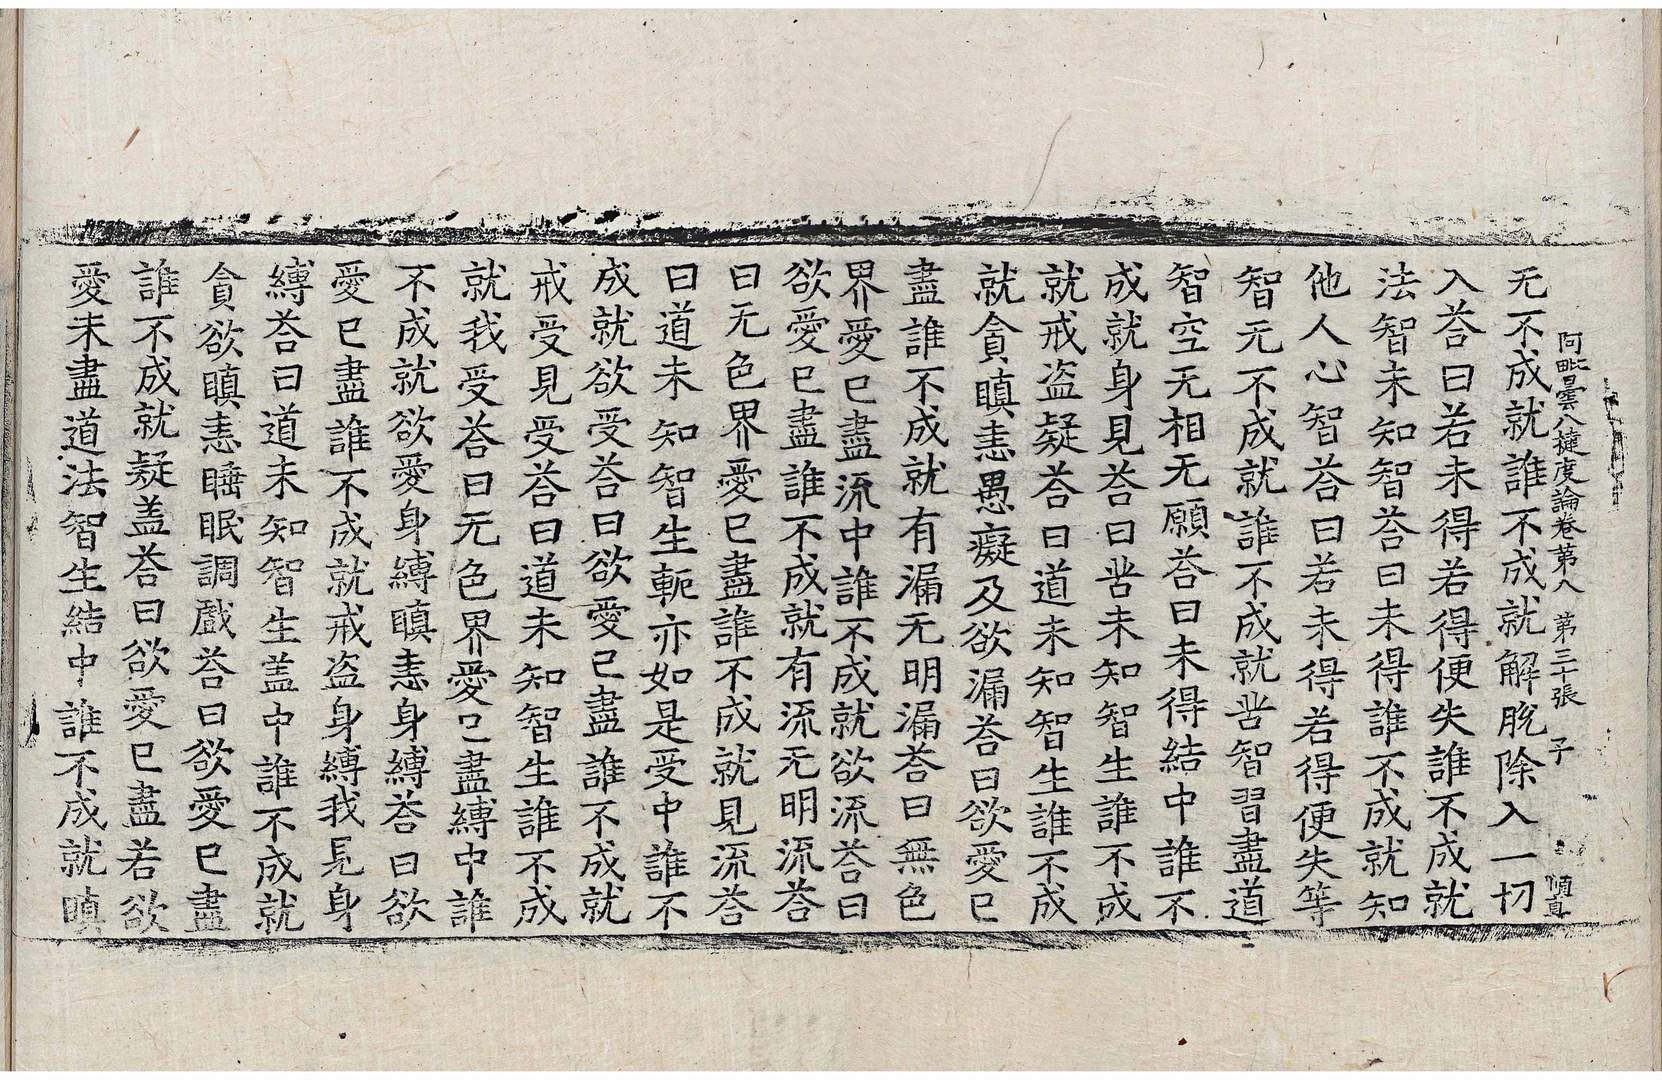 阿毗曇八揵度論卷第八　第三十張　子
无不成就誰不成就解脫除入一切
入荅曰若未得若得便失誰不成就
法智未知智荅曰未得誰不成就知
他人心智荅曰若未得若得便失等
智无不成就誰不成就苦智習盡道
智空无相无願荅曰未得結中誰不
成就身見荅曰苦未知智生誰不成
就戒盗疑荅曰道未知智生誰不成
就貪瞋恚愚癡及欲漏荅曰欲愛已
盡誰不成就有漏无明漏荅曰無色
界愛已盡流中誰不成就欲流荅曰
欲愛已盡誰不成就有流无明流荅
曰无色界愛已盡誰不成就見流荅
曰道未知智生軛亦如是受中誰不
成就欲受荅曰欲愛已盡誰不成就
戒受見受荅曰道未知智生誰不成
就我受荅曰无色界愛已盡縛中誰
不成就欲愛身縛瞋恚身縛荅曰欲
愛已盡誰不成就戒盗身縛我見身
縛荅曰道未知智生盖中誰不成就
貪欲瞋恚睡眠調戲荅曰欲愛已盡
誰不成就疑盖荅曰欲愛已盡若欲
愛未盡道法智生結中誰不成就瞋